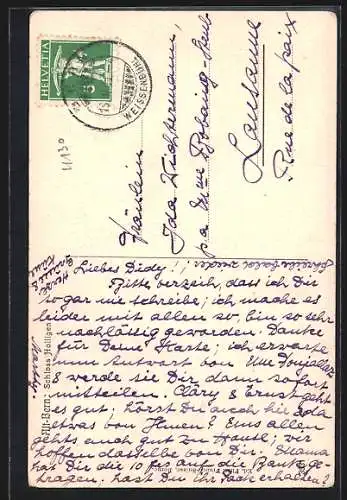 HELVETIA
5
WEISSENBURG
11130
Fräulein
Ida Wichtermann,
pa Mme
Lausanne
Rue de la paix
Schreibe bald wieder
Herzl.
Grüsse &
Küsse
Liebes Dédy!!
Bitte verzeih, dass ich Dir
so gar nie schreibe; ich mache es
leider mit allen so, bin so sehr
nachlässig geworden. Danke
für Deine Karte; ich erwarte
nun Antwort von Mme
& werde sie Dir dann sofort
mitteilen. Clary & Ernst geht
es gut; hörst Du auch hie & da
etwas von Ihnen? Uns allen
gehts auch gut zu Hause, wir
hoffen dasselbe von Dir. Mama
hat Dir die 10 frs auf die Bank ge-
tragen, hast Du ihr
Alt-Bern: Schloss Holligen